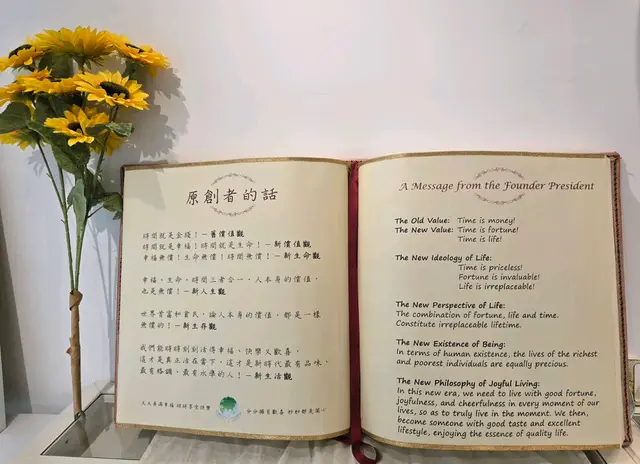 原創者的話
時間就是金錢！－舊價值觀
時間就是幸福！時間就是生命！－新價值觀
幸福無價！生命無價！時間無價！－新生命觀
幸福、生命、時間三者合一，人本身的價值，
也是無價！－新人生觀
世界首富和貧民，論人本身的價值，都是一樣
無價的！－新生存觀
我們能時時刻刻活得幸福、快樂又歡喜，
這才是真正活在當下，這才是新時代最有品味、
最有格調、最有水準的人！－新生活觀
人人美滿幸福 時時享受祥樂
分分擁有歡喜 秒秒都是開心
A Message from the Founder President
The Old Value: Time is money!
The New Value: Time is fortune!
Time is life!
The New Ideology of Life:
Time is priceless!
Fortune is invaluable!
Life is irreplaceable!
The New Perspective of Life:
The combination of fortune, life and time.
Constitute irreplaceable lifetime.
The New Existence of Being:
In terms of human existence, the lives of the richest
and poorest individuals are equally precious.
The New Philosophy of Joyful Living:
In this new era, we need to live with good fortune,
joyfulness, and cheerfulness in every moment of our
lives, so as to truly live in the moment. We then,
become someone with good taste and excellent
lifestyle, enjoying the essence of quality life.